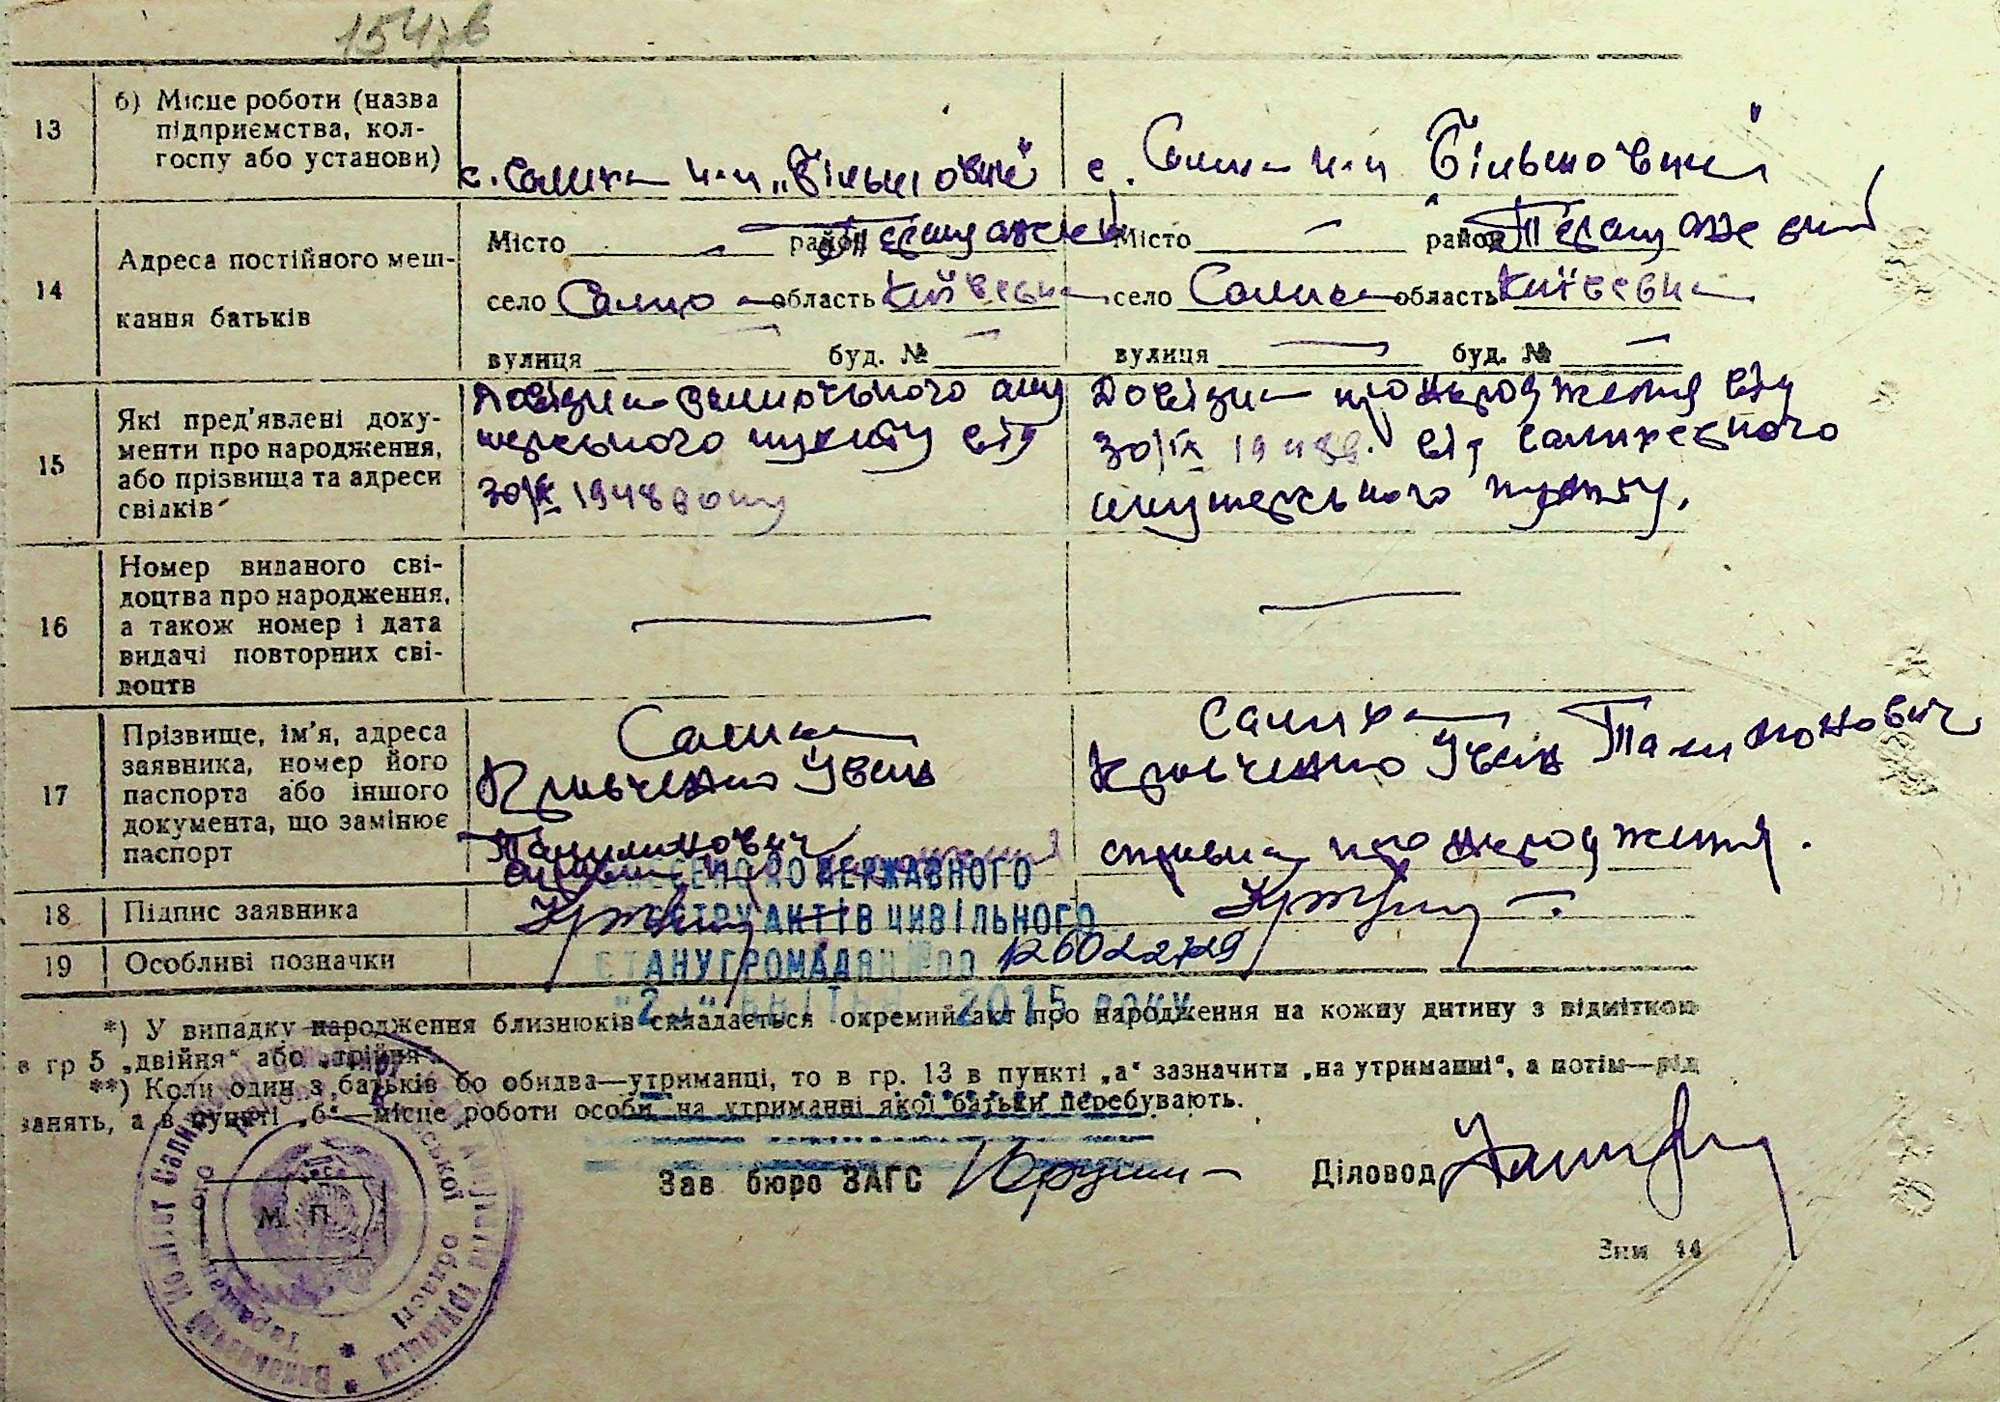 154зв
13
б) Місце роботи (назва
підприємства, кол-
госпу або установи)
с. Салиха к-п „Більшовик"
с. Салиха к-п Більшовик"
14
Адреса постійного меш-
кання батьків
Місто район Таращанський
село Салиха область Київська
вулиця буд. №
Місто район Таращанський
село Салиха область Київська
вулиця буд. №
15
Які пред'явлені доку-
менти про народження,
або прізвища та адреси
свідків
Довізка аку
шерського пункту від
30/IX 1948 року
Довізка про народження від
30/IX 1948р. від Салихського
акушерського пункту.
16
Номер виданого сві-
доцтва про народження,
а також номер і дата
видачі повторних сві-
доцтв
17
Прізвище, ім'я, адреса
заявника, номер його
паспорта або іншого
документа, що замінює
паспорт
Салиха
Кравченко Іван
Салиха
Кравченко Іван
справка про народження.
18
Підпис заявника
19
Особливі позначки
ВНЕСЕНО ДО ДЕРЖАВНОГО
РЕЄСТРУ АКТІВ ЦИВІЛЬНОГО
СТАНУ ГРОМАДЯН №00 12602279
КВІТНЯ 2015 РОКУ
*) У випадку народження близнюків складається окремий акт про народження на кожну дитину з відміткою
в гр 5 „двійня" або „трійня".
**) Коли один з батьків бо обидва—утриманці, то в гр. 13 в пункті „а" зазначити „на утриманні", а потім—рід
занять, а в пункті „б"—місце роботи особи на утриманні якої батьки перебувають.
Зав бюро ЗАГС
Діловод
М. П.
Виконавчий Комітет
депутатів трудящих
області
Зам 44